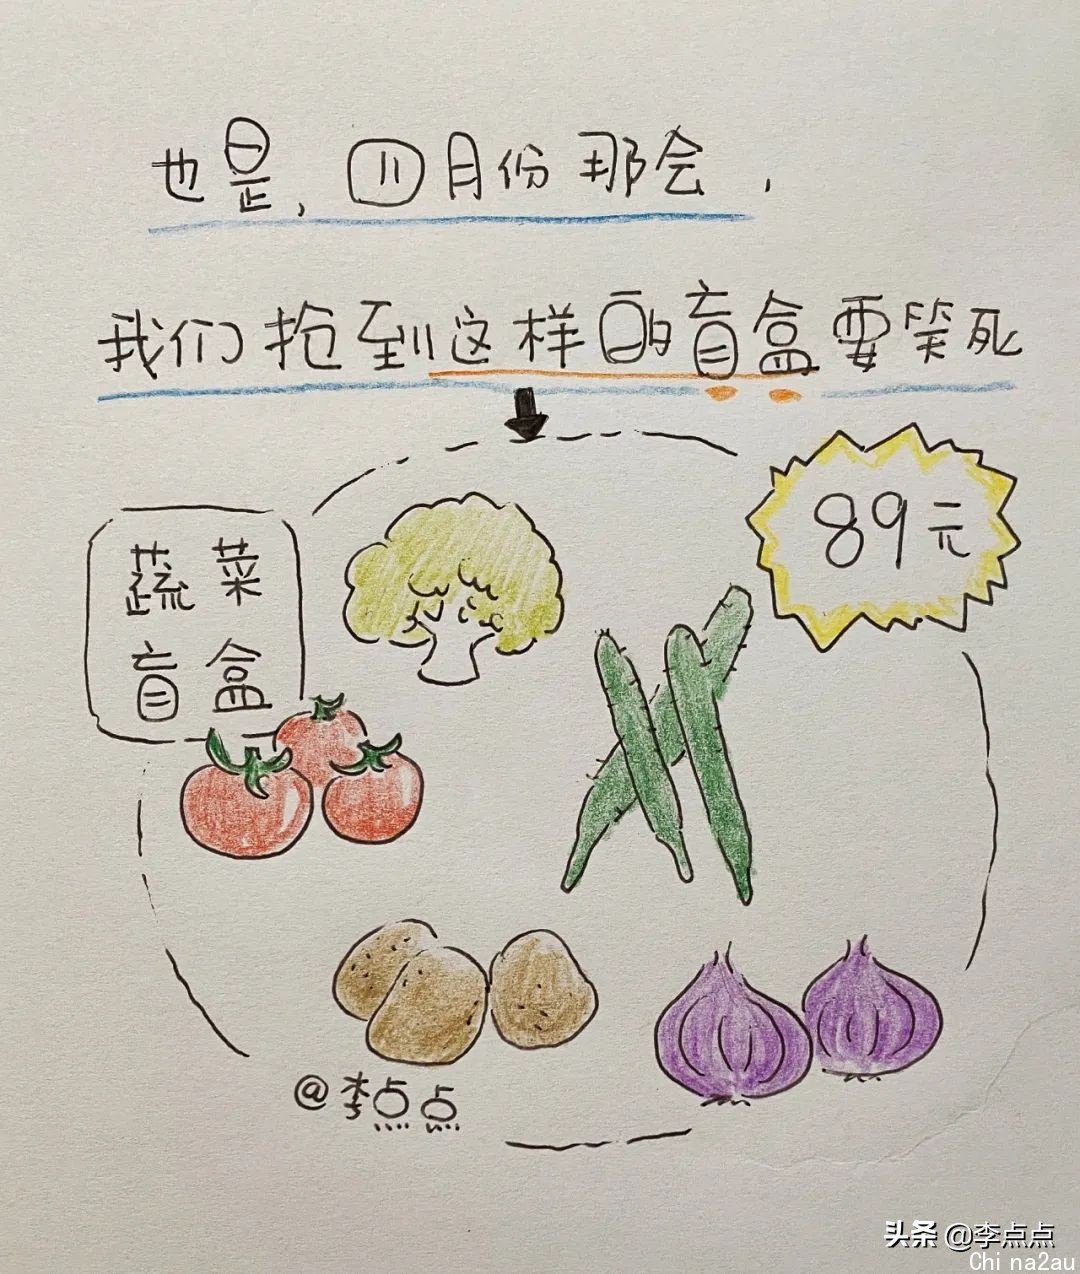 也是，四月份那会，
我们抢到这样的盲盒要笑死
89元
蔬菜
盲盒
@李点点
头条 @李点点
Chi na2au